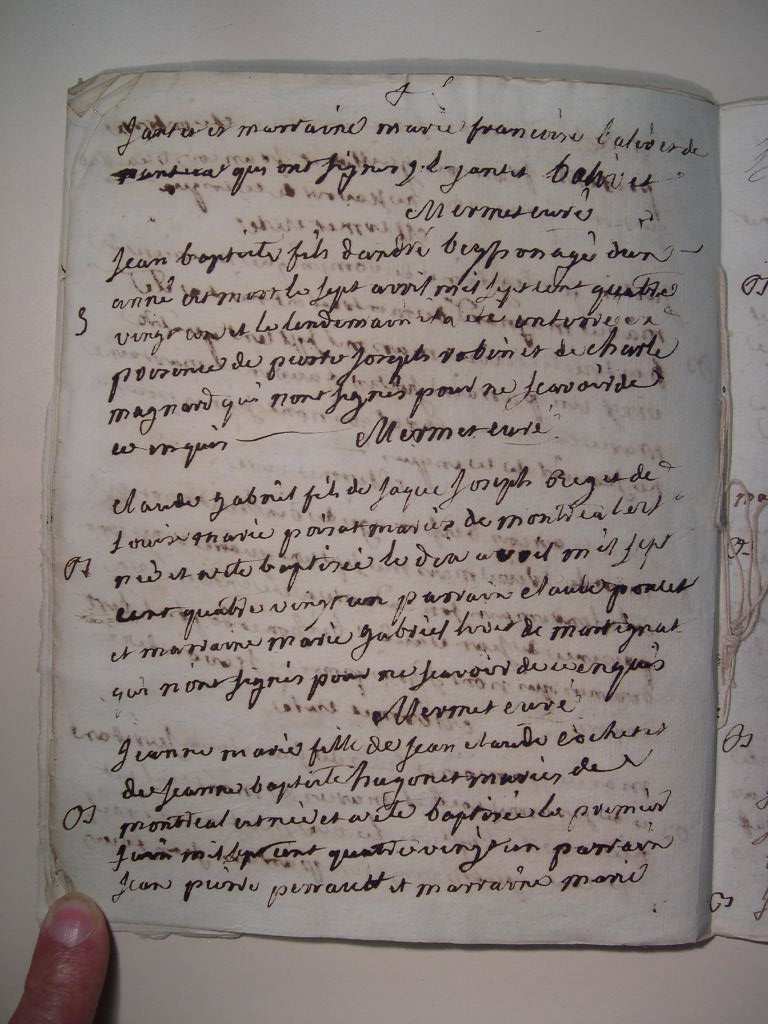 Jantet et marraine marie francoise balivet de
nantua qui ont signes j. l. jantet balivet
Mermet curé
Jean baptiste fils dandré beyssonagé d'un
anné est mort le sept avril mil sept cent quatre
S vingt un et le lendemain il a été enterré en
presence de pierre Joseph robin et de charle
magnard qui n'ont signés pour ne scavoir de
ce enquis Mermet curé
claude gabriel fils de Jaque Joseph et de
Louise marie poisat mariés de montreal est
B né et a été baptisée le dix avril mil sept
cent quatre vingt un parrain claude poncet
et marraine marie gabriel livet de martignat
qui n'ont signés pour ne scavoir de ce enquis
Mermet curé
Jeanne marie fille de Jean claude cochet et
de Jeanne baptiste hugonet mariés de
B montreal est née et a été baptisée le premier
Juin mil sept cent quatre vingt un parrain
Jean pierre perrault et marraine marie